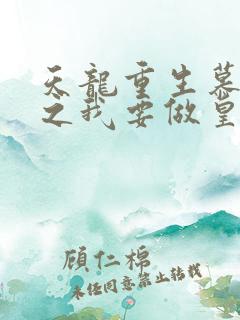 天龍重生慕
之我要做皇
顧仁棉
未經同意禁止轉載